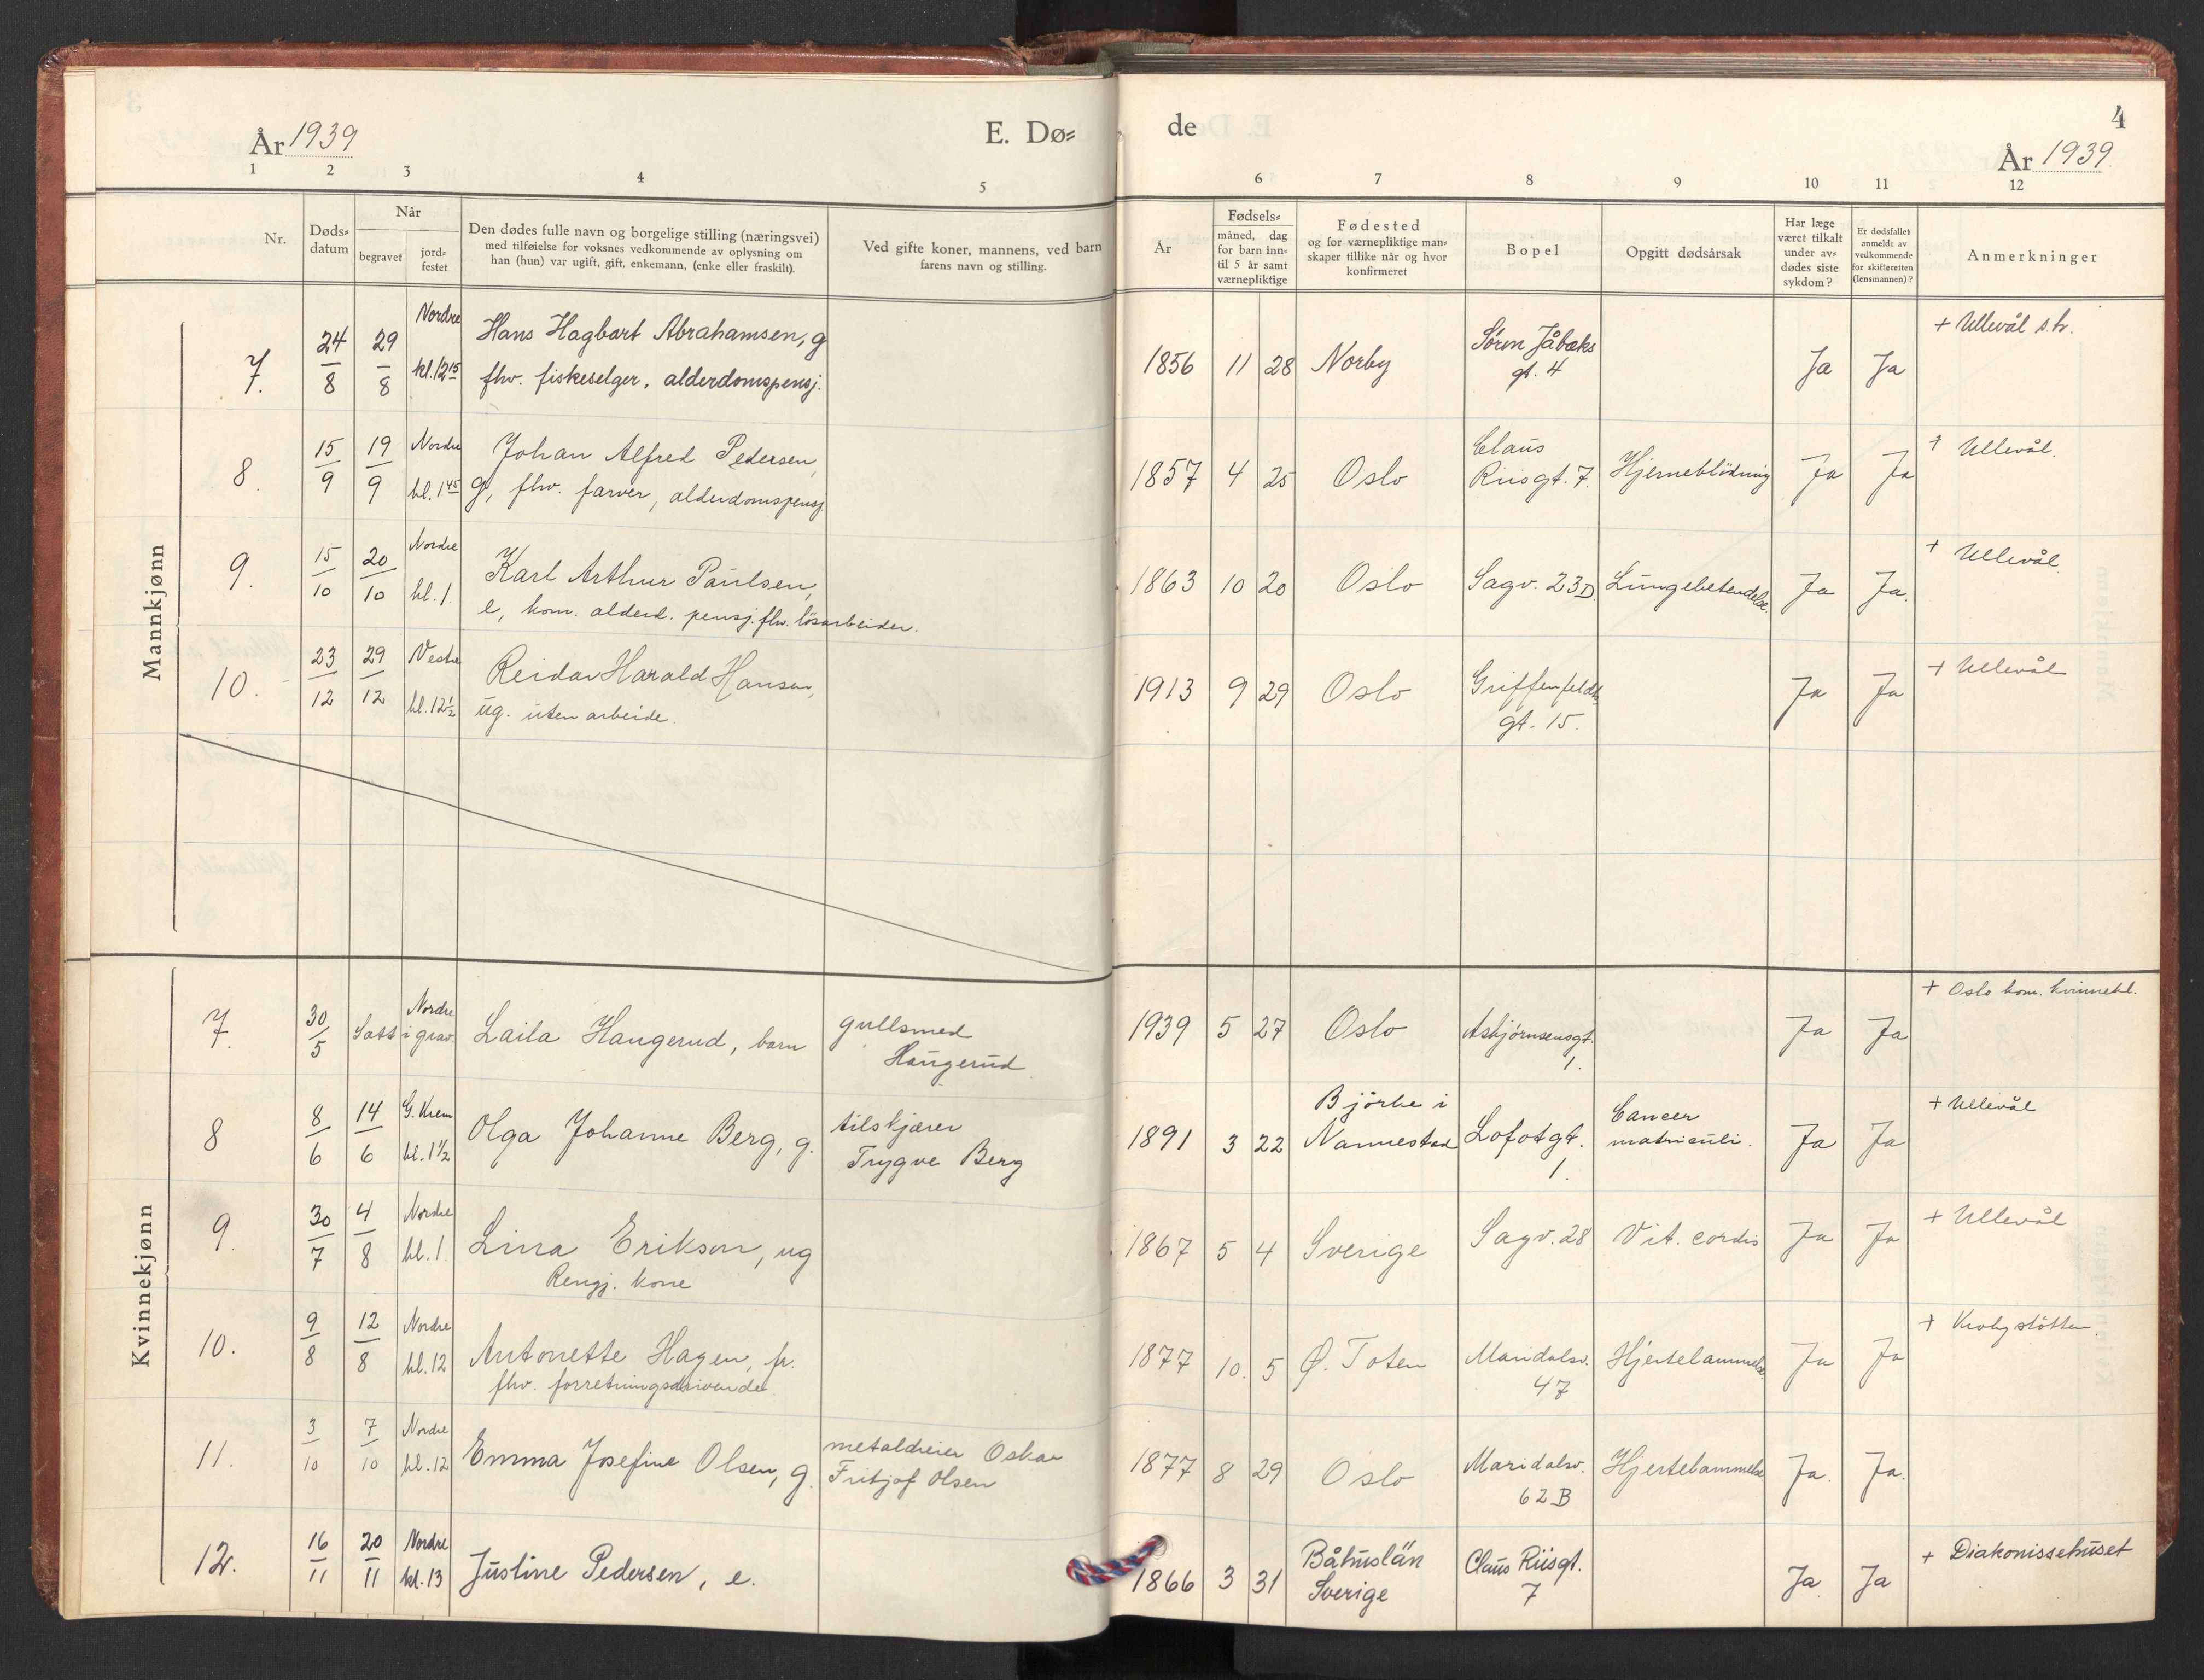 År 1939
E. Dø=
de
4
År 1939
1 2 3 4 5 6 7 8 9 10 11 12
Nr.
Døds=
datum
Når
begravet
jord=
festet
Den dødes fulle navn og borgelige stilling (næringsvei)
med tilføielse for voksnes vedkommende av oplysning om
han (hun) var ugift, gift, enkemann, (enke eller fraskilt).
Ved gifte koner, mannens, ved barn
farens navn og stilling.
År
Fødsels=
måned, dag
for barn inn=
til 5 år samt
værnepliktige
Fødested
og for værnepliktige man=
skaper tillike når og hvor
konfirmeret
Bopel
Opgitt dødsårsak
Har læge
været tilkalt
under av=
dødes siste
sykdom?
Er dødsfallet
anmeldt av
vedkommende
for skifteretten
(lensmannen)?
Anmerkninger
Mannkjønn
7. 24/8 29/8 Nordre kl. 12 15 Hans Hagbart Abrahamsen, g
fhv. fiskeselger, alderdomspensj.
1856 11 28 Norby Søren Jåbæks
gt. 4
Ja Ja + Ullevål s.h.
8. 15/9 19/9 Nordre kl. 1 45 Johan Alfred Pedersen,
g, fhv. farver, alderdomspensj.
1857 4 25 Oslo Claus
Riisgt. 7. Hjerneblödning Ja Ja + Ullevål.
9. 15/10 20/10 Nordre kl. 1 Karl Arthur Paulsen,
e, kom. alderd. pensj. fhv. lösarbeider.
1863 10 20 Oslo Sagv. 23D. Lungebetendelse. Ja Ja. + Ullevål.
10. 23/12 29/12 Vestre kl. 12 1/2 Reidar Harald Hansen,
ug. uten arbeide.
1913 9 29 Oslo Griffenfeldts
gt. 15. Ja Ja + Ullevål
Kvinnekjønn
7. 30/5 Satt i grav Nordre Laila Haugerud, barn
gullsmed
Haugerud.
1939 5 27 Oslo Asbjørnsensgt.
1. Ja Ja + Oslo kom. kvinnekl.
8 8/6 14/6 G. Krem kl. 1 1/2 Olga Johanne Berg, g.
tilskjærer
Trygve Berg
1891 3 22 Björke i
Nannestad Lofotgt.
1. Cancer
matriculi. Ja Ja + Ullevål
9. 30/7 4/8 Nordre kl. 1 Lina Erikson, ug
Rengj. kone
1867 5 4 Sverige Sagv. 28 Vit. cordis Ja Ja + Ullevål
10. 9/8 12/8 Nordre kl. 12 Antonette Hagen, fr.
fhv. forretningsdrivende.
1877 10. 5 Ø. Toten Maridalsv.
47 Hjertelammelse. Ja Ja + Krohgstötten.
11. 3/10 7/10 Nordre kl. 12 Emma Josefine Olsen, g.
metaldreier Oskar
Fritjof Olsen
1877 8 29 Oslo Maridalsv.
62B Hjertelammelse Ja. Ja.
12. 16/11 20/11 Nordre kl. 13 Justine Pedersen, e.
1866 3 31 Båhuslän
Sverige Claus Riisgt.
7 Ja Ja + Diakonissehuset